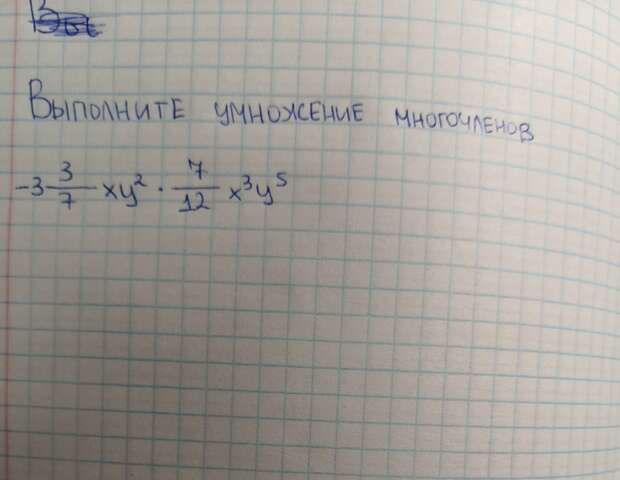 Выполните умножение многочленов
-3 3/7 xy² · 7/12 x³y⁵